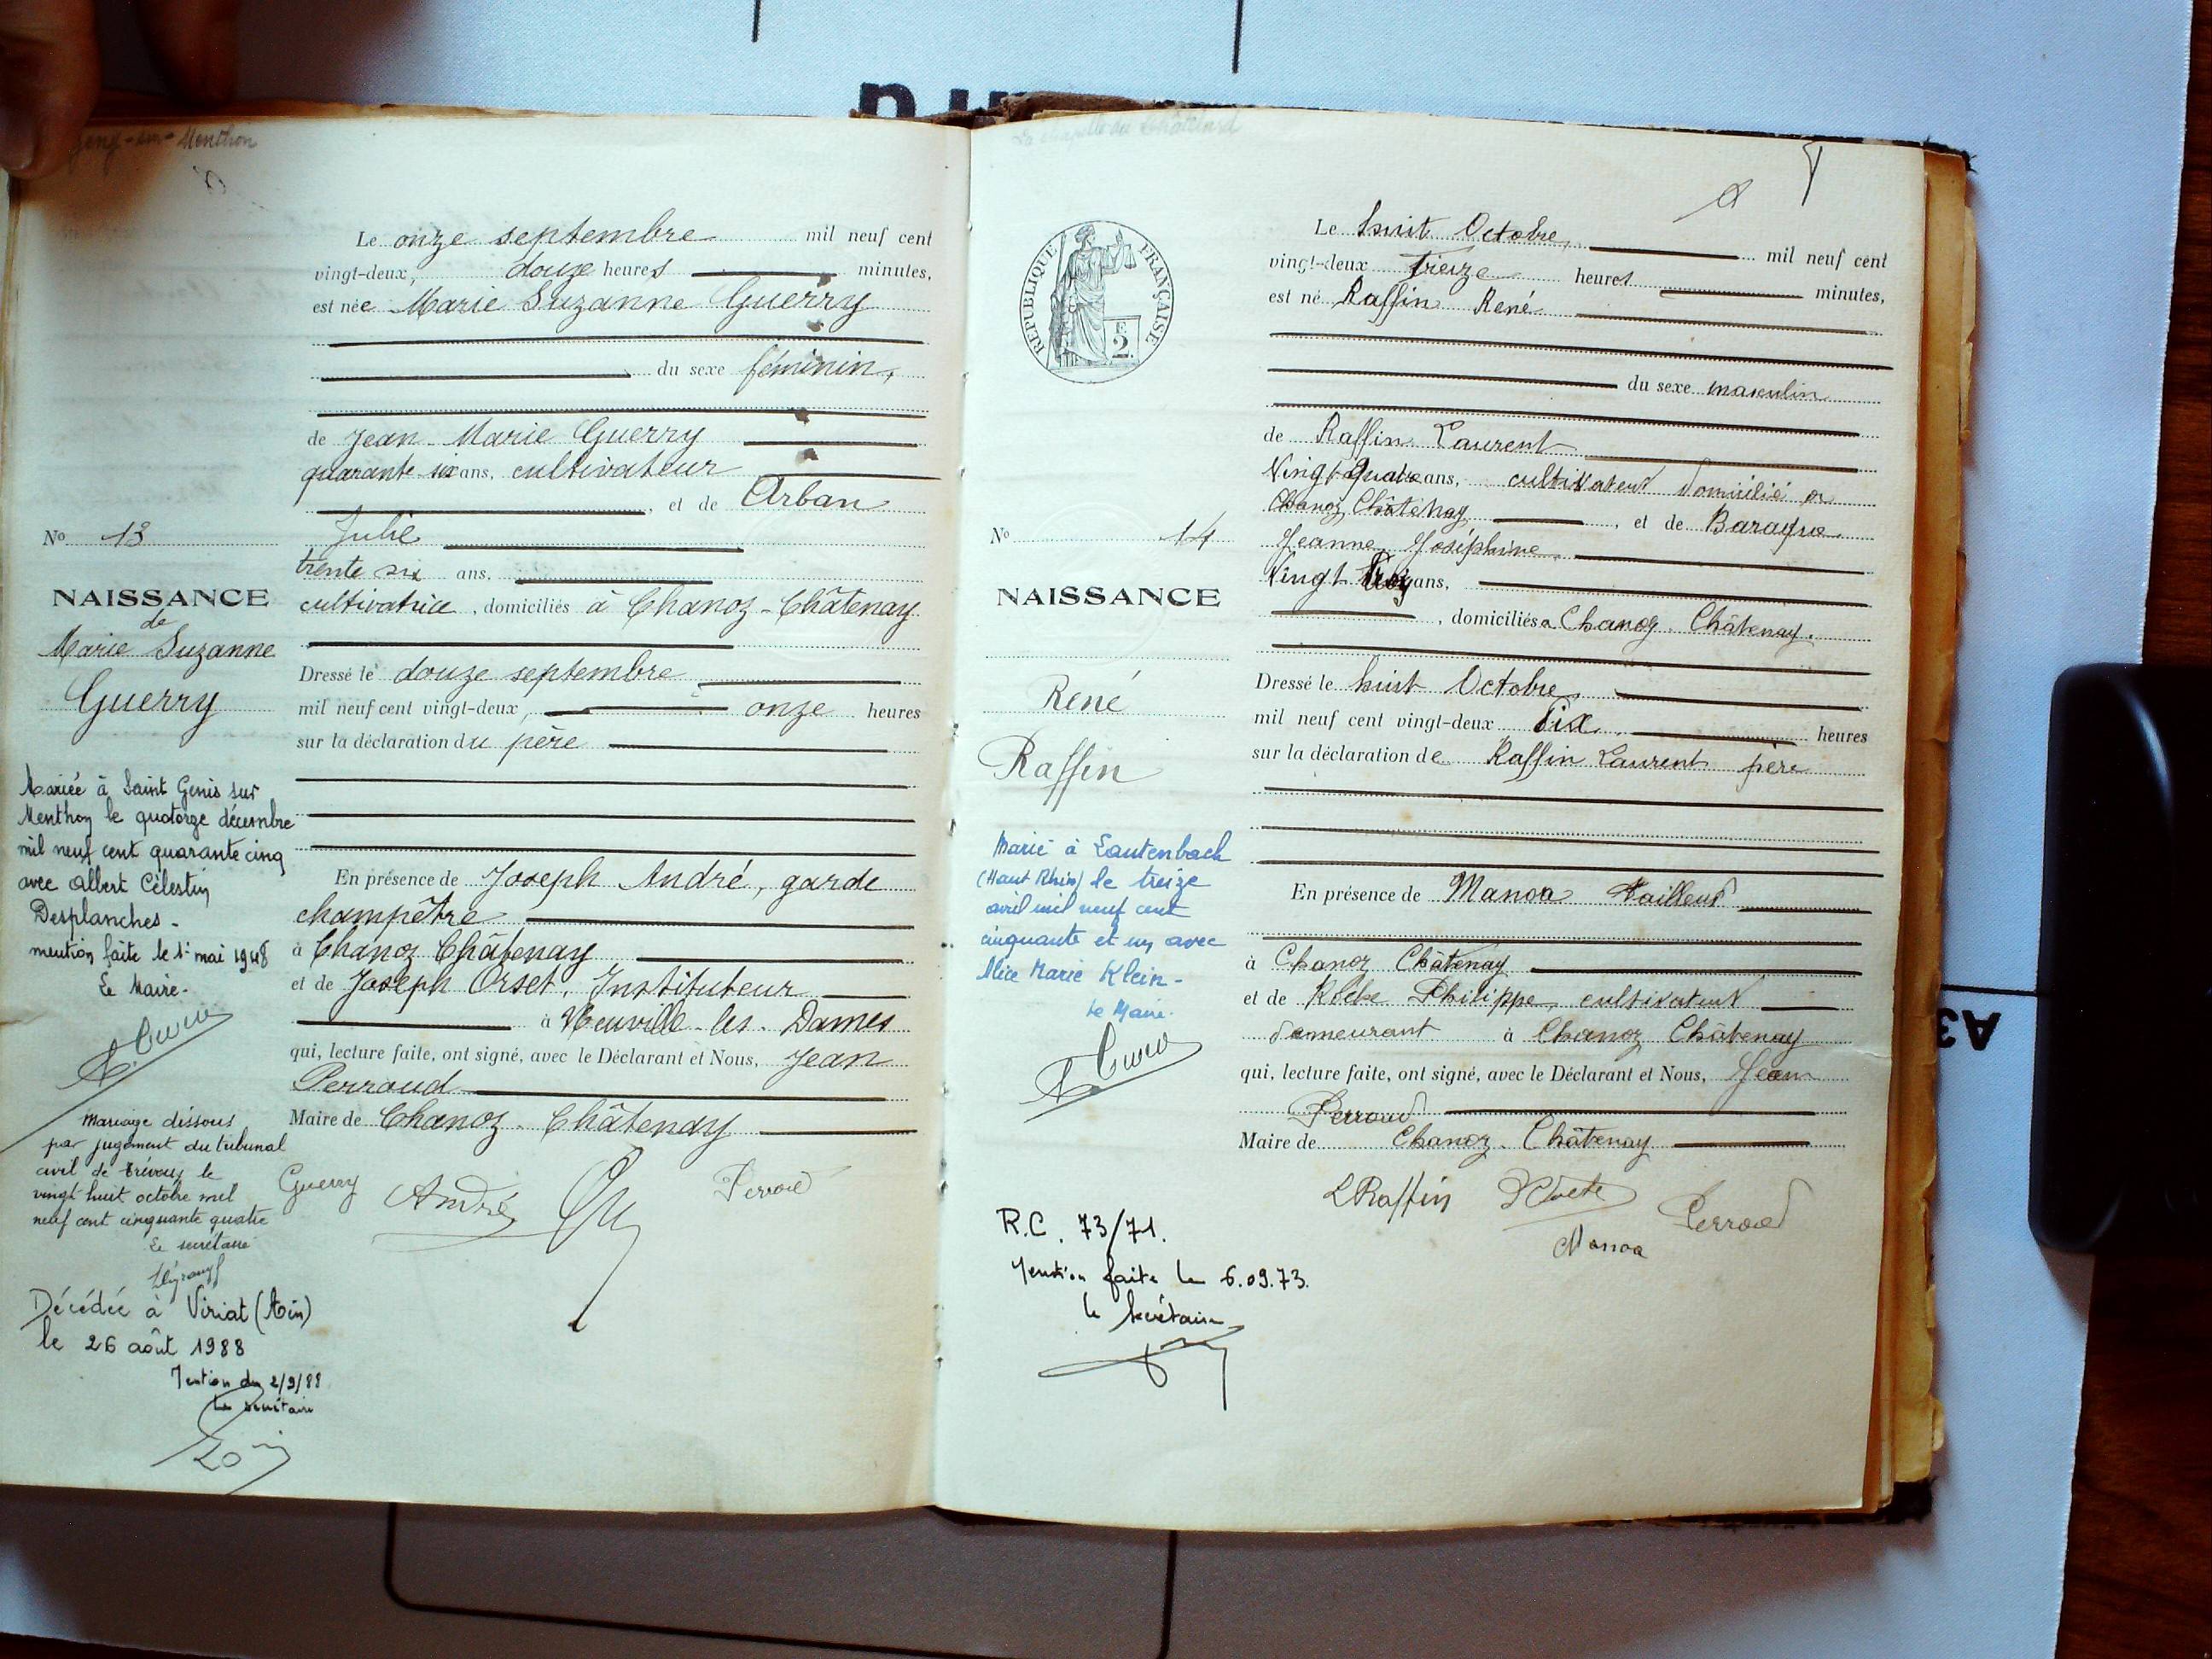 Le onze septembre mil neuf cent
vingt-deux, douze heures minutes,
est née Marie Suzanne Guerry
du sexe féminin,
de Jean Marie Guerry
quarante six ans, cultivateur
, et de Arban
Julie
trente six ans,
cultivatrice, domiciliés à Chanoz-Châtenay
Dressé le douze septembre
mil neuf cent vingt-deux, onze heures
sur la déclaration du père
En présence de Joseph André, garde
champêtre
à Chanoz Châtenay
et de Joseph Orset, Instituteur
à Neuville-les-Dames
qui, lecture faite, ont signé, avec le Déclarant et Nous, Jean
Perroud
Maire de Chanoz-Châtenay
Guerry André Perroud
No 13
NAISSANCE
de
Marie Suzanne
Guerry
Mariée à Saint Genis sur
Menthon le quatorze décembre
mil neuf cent quarante cinq
avec Albert Célestin
Desplanches-
mention faite le 1er mai 1948
Le Maire-
Mariage dissous
par jugement du tribunal
civil de Trévoux le
vingt huit octobre mil
neuf cent cinquante quatre
Le secrétaire
Décédée à Viriat (Ain)
le 26 août 1988
Mention du 2/9/88
Le secrétaire
La chapelle du Châtelard
RÉPUBLIQUE FRANÇAISE
E
2.
Le huit Octobre, mil neuf cent
vingt-deux Treize heures minutes,
est né Raffin René
du sexe masculin
de Raffin Laurent
Vingt quatre ans, cultivateur domicilié à
Chanoz Châtenay, et de
Jeanne Joséphine
Vingt Trois ans,
, domiciliés à Chanoz Châtenay.
Dressé le huit Octobre
mil neuf cent vingt-deux Dix heures
sur la déclaration de Raffin Laurent père
En présence de Manoa Tailleur
à Chanoz Châtenay
et de Philippe, cultivateur
demeurant à Chanoz Châtenay
qui, lecture faite, ont signé, avec le Déclarant et Nous, Jean
Perroud
Maire de Chanoz-Châtenay
L Raffin Perroud
Manoa
No 14
NAISSANCE
René
Raffin
Marié à Lautenbach
(Haut Rhin) le treize
avril mil neuf cent
cinquante et un avec
Alice Marie Klein-
Le Maire.
R.C. 73/71.
Mention faite le 6.09.73.
le Secrétaire
A3